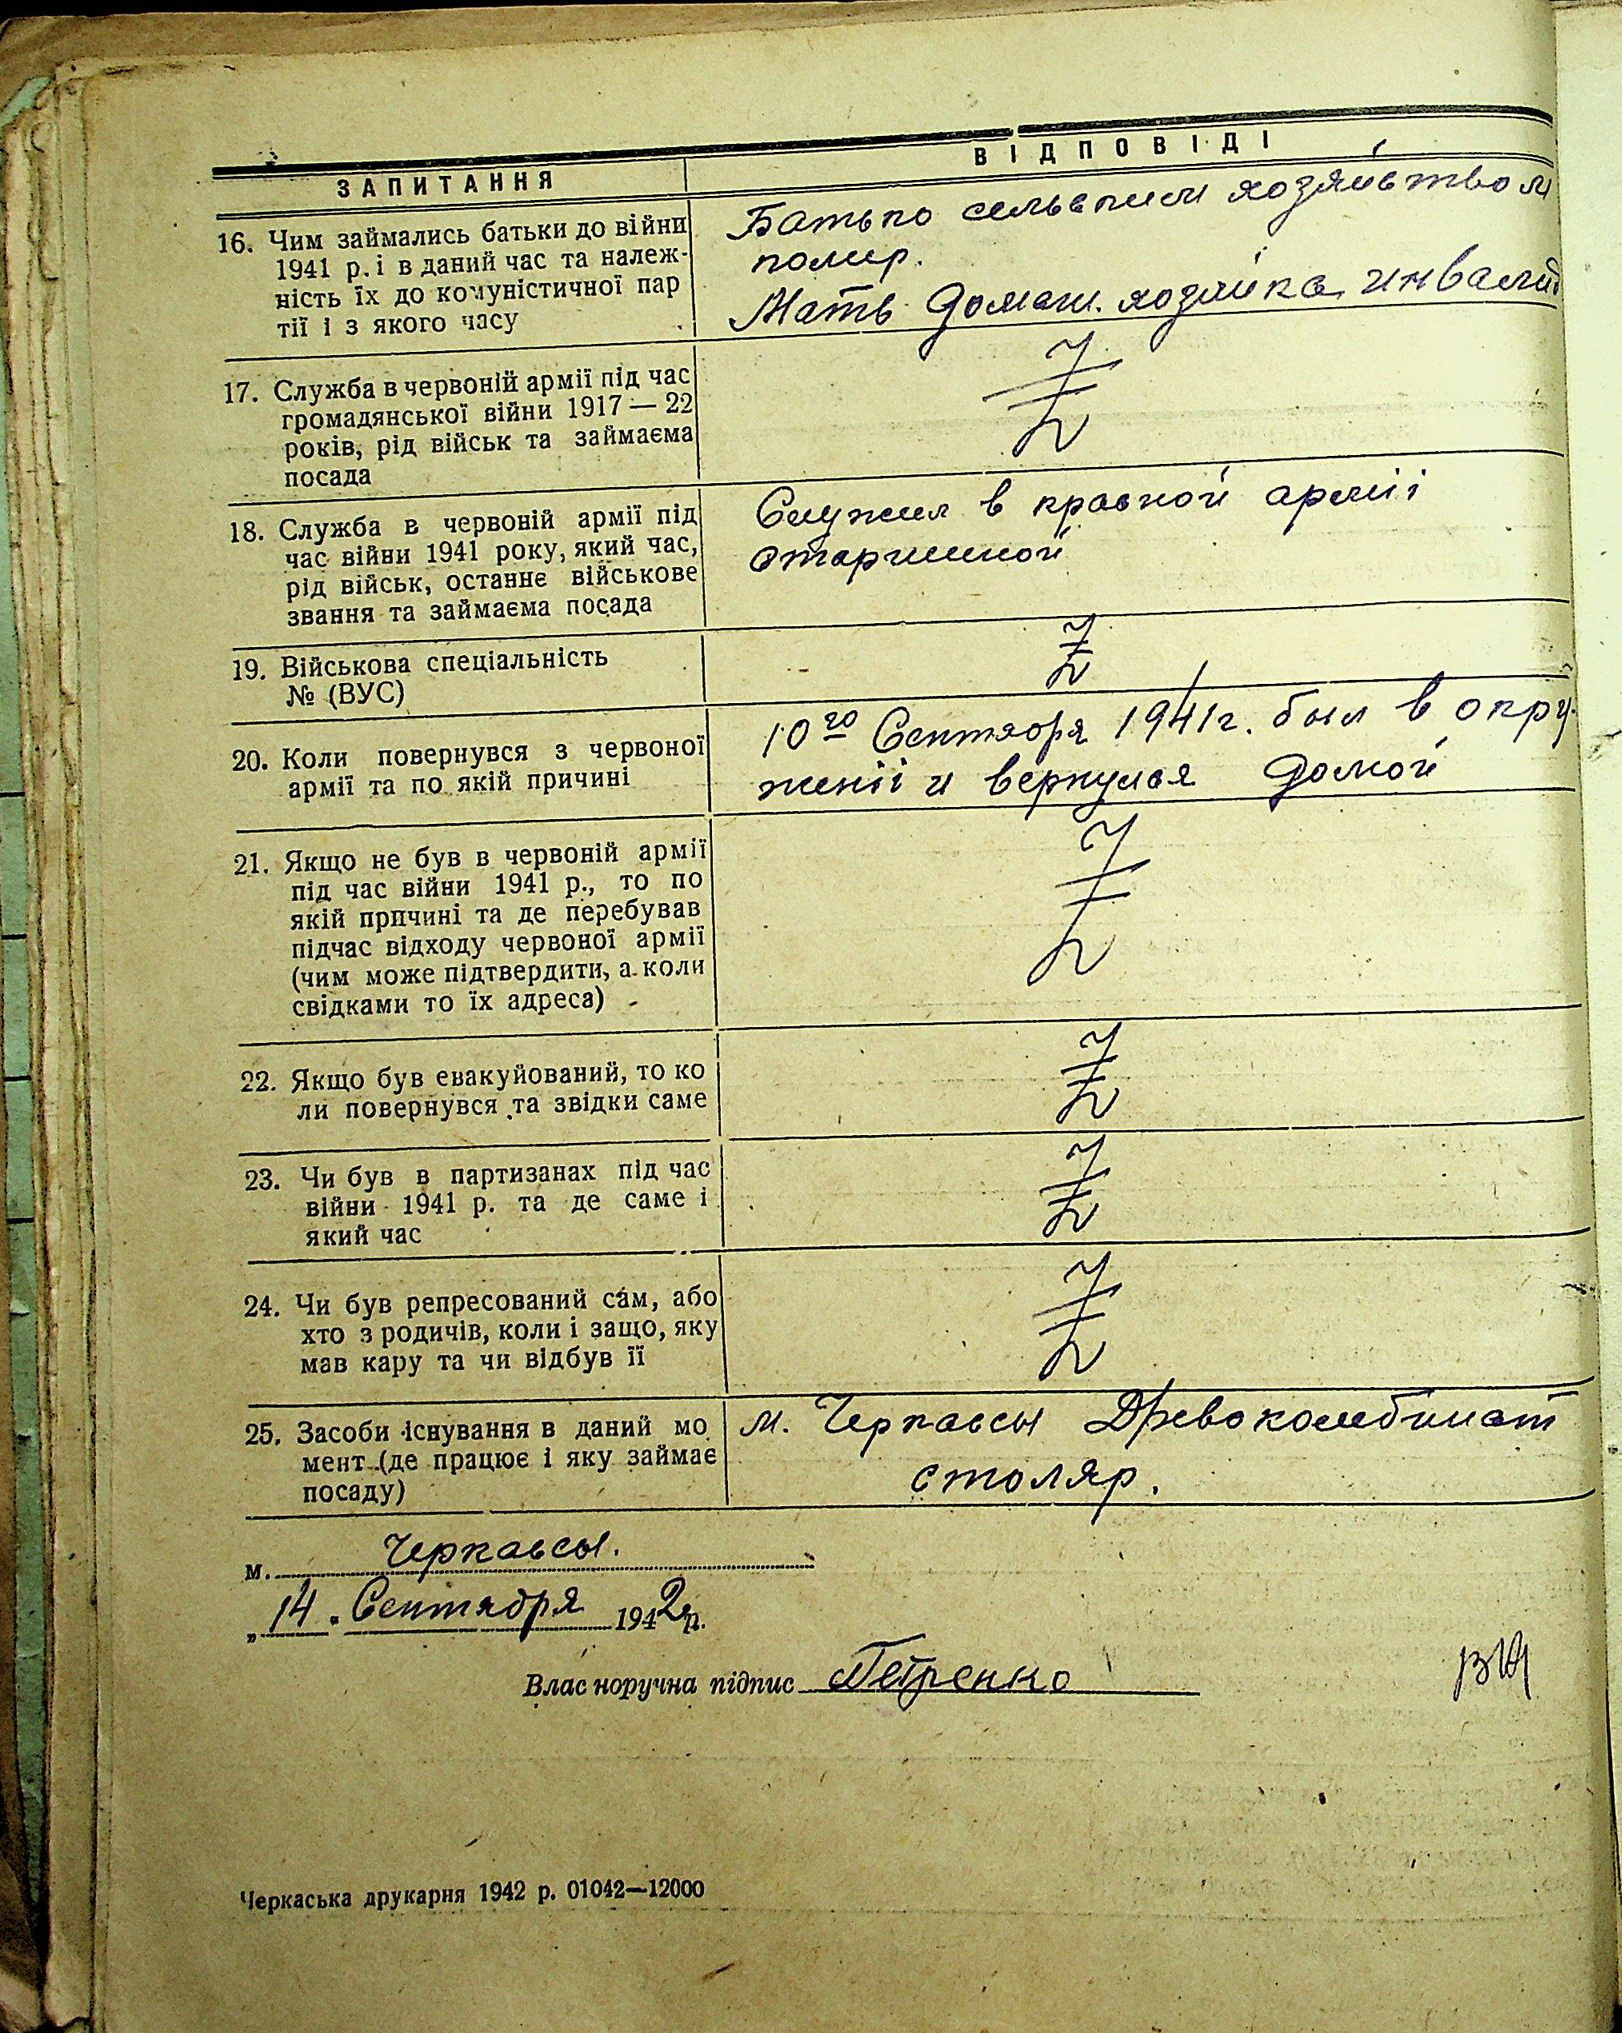 ЗАПИТАННЯ
ВІДПОВІДІ
16. Чим займались батьки до війни
1941 р. і в даний час та належ-
ність їх до комуністичної пар
тії і з якого часу
Батько сельским хозяйством
помер.
Мать домаш. хозяйка инвалид
17. Служба в червоній армії під час
громадянської війни 1917 — 22
років, рід військ та займаєма
посада
18. Служба в червоній армії під
час війни 1941 року, який час,
рід військ, останнє військове
звання та займаєма посада
Служил в красной армії
старшиной
19. Військова спеціальність
№ (ВУС)
20. Коли повернувся з червоної
армії та по якій причині
10го Сентября 1941г. был в окру-
женіі и вернулся домой
21. Якщо не був в червоній армії
під час війни 1941 р., то по
якій причині та де перебував
підчас відходу червоної армії
(чим може підтвердити, а коли
свідками то їх адреса)
22. Якщо був евакуйований, то ко
ли повернувся та звідки саме
23. Чи був в партизанах під час
війни 1941 р. та де саме і
який час
24. Чи був репресований сам, або
хто з родичів, коли і защо, яку
мав кару та чи відбув її
25. Засоби існування в даний мо
мент (де працює і яку займає
посаду)
м. Черкассы Древокомбинат
столяр.
м. Черкассы.
„14. Сентября 1942р.
Власноручна підпис Петренко
Черкаська друкарня 1942 р. 01042—12000